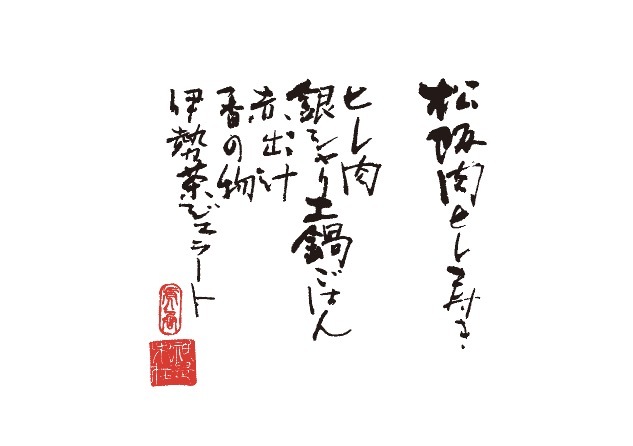 松阪肉ヒレ寿き
ヒレ肉
銀シャリ土鍋ごはん
赤出汁
香の物
伊勢茶ジェラート